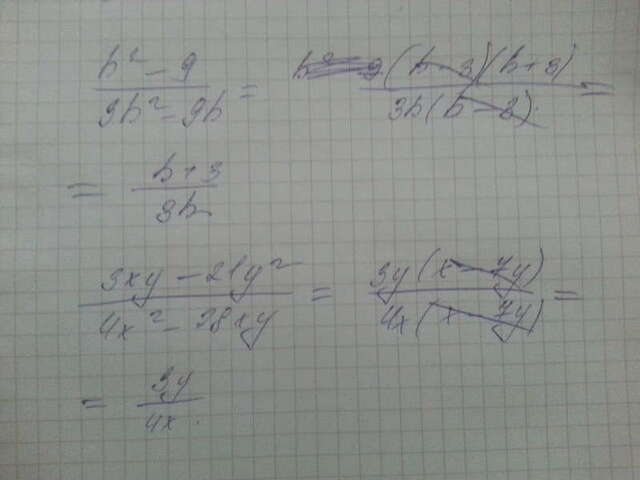 b² - 9 / 3b² - 9b = (b - 3)(b + 3) / 3b(b - 3) =
= b + 3 / 3b
3xy - 21y² / 4x² - 28xy = 3y(x - 7y) / 4x(x - 7y) =
= 3y / 4x